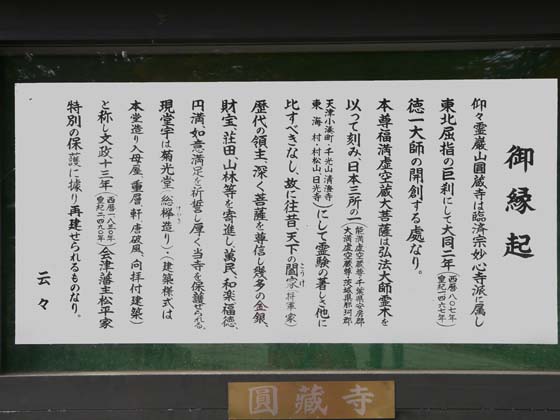 御縁起
仰々霊巌山圓蔵寺は臨済宗妙心寺派に属し
東北屈指の巨刹にして大同二年(西暦八〇七年 皇紀一四六七年)
徳一大師の開創する処なり。
本尊福満虚空蔵大菩薩は弘法大師霊木を
以って刻み、日本三所の一(能満虚空蔵尊・千葉県安房郡 大満虚空蔵尊・茨城県那珂郡
天津小湊町・千光山清澄寺 東海村・村松山日光寺)にして霊験の著しき他に
比すべきなし、故に往昔、天下の閤家(将軍家)
こうけ
歴代の領主、深く菩薩を尊信し幾多の金銀、
財宝、荘田、山林等を寄進し、萬民、和楽福徳、
円満如意満足を祈誓し厚く当寺を保護せられる
現堂宇は菊光堂(総欅造り)・(建築様式は
けやき
本堂造り入母屋、重層、軒、唐破風、向拝付建築)
と称し文政十三年(西暦一八三〇年 皇紀二四九〇年)会津藩主松平家
特別の保護に據り再建せられるものなり。
云々
圓藏寺